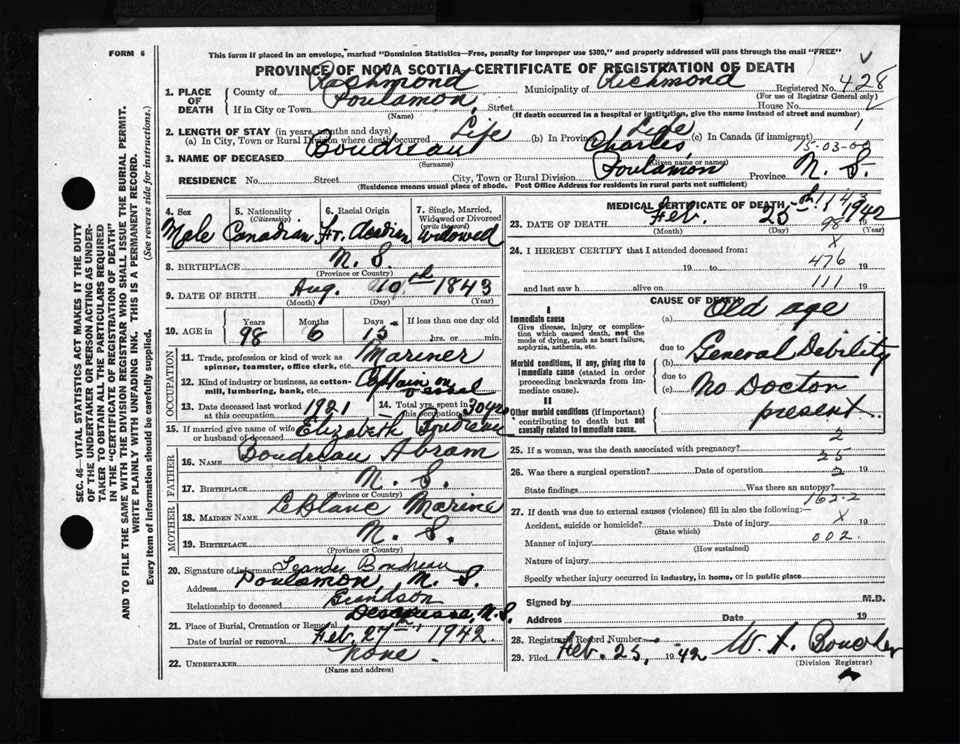 FORM 6
This form if placed in an envelope, marked "Dominion Statistics—Free, penalty for improper use $300," and properly addressed will pass through the mail "FREE"
PROVINCE OF NOVA SCOTIA, CERTIFICATE OF REGISTRATION OF DEATH
1. PLACE OF DEATH County of Richmond Municipality of Richmond Registered No. 428
(For use of Registrar General only)
If in City or Town Poulamon, Street House No.
(Name) (If death occurred in a hospital or institution, give the name instead of street and number)
2. LENGTH OF STAY (in years, months and days)
(a) In City, Town or Rural Division where death occurred Life (b) In Province Life (c) In Canada (if immigrant) 1
3. NAME OF DECEASED Boudreau Charles 15-03-00
(Surname) (Given name or names)
RESIDENCE No. Street City, Town or Rural Division Poulamon Province N. S.
(Residence means usual place of abode. Post Office Address for residents in rural parts not sufficient)
4. Sex Male
5. Nationality (Citizenship) Canadian
6. Racial Origin Fr. Acadien
7. Single, Married, Widowed or Divorced (write the word) Widowed
8. BIRTHPLACE N. S.
(Province or Country)
9. DATE OF BIRTH Aug. 10th 1843
(Month) (Day) (Year)
10. AGE in Years Months Days If less than one day old
98 6 15 hrs. or min.
OCCUPATION
11. Trade, profession or kind of work as spinner, teamster, office clerk, etc. Mariner
12. Kind of industry or business, as cotton-mill, lumbering, bank, etc. Captain on vessel
13. Date deceased last worked at this occupation 1921
14. Total yrs. spent in this occupation
15. If married give name of wife or husband of deceased Elizabeth Boudreau
FATHER
16. NAME Boudreau Abram
17. BIRTHPLACE N. S.
(Province or Country)
MOTHER
18. MAIDEN NAME LeBlanc Marine
19. BIRTHPLACE N. S.
(Province or Country)
20. Signature of informant Leander Boudreau
Address Poulamon, N. S.
Relationship to deceased Grandson
21. Place of Burial, Cremation or Removal Descousse, N.S.
Date of burial or removal Feb. 27th 1942.
22. UNDERTAKER none.
(Name and address)
MEDICAL CERTIFICATE OF DEATH
23. DATE OF DEATH Feb. 25th 1942
(Month) (Day) (Year)
98
24. I HEREBY CERTIFY that I attended deceased from: X
19 to 476 19
and last saw h alive on 111 19
CAUSE OF DEATH
I
Immediate cause (a) Old age
Give disease, injury or complication which caused death, not the mode of dying, such as heart failure, asphyxia, asthenia, etc.
due to General Debility
Morbid conditions, if any, giving rise to immediate cause (stated in order proceeding backwards from immediate cause). (b)
due to
(c) No Doctor present.
II
Other morbid conditions (if important) contributing to death but not causally related to immediate cause.
25. If a woman, was the death associated with pregnancy? 2
25
26. Was there a surgical operation? Date of operation 2 19
State findings Was there an autopsy?
162.2
27. If death was due to external causes (violence) fill in also the following:—
Accident, suicide or homicide? Date of injury X 19
(State which)
Manner of injury 002.
(How sustained)
Nature of injury
Specify whether injury occurred in industry, in home, or in public place
Signed by M.D.
Address Date 19
28. Registrar's Record Number
29. Filed Feb. 25, 1942
(Division Registrar)
SEC. 46—VITAL STATISTICS ACT MAKES IT THE DUTY
OF THE UNDERTAKER OR PERSON ACTING AS UNDER-
TAKER TO OBTAIN ALL THE PARTICULARS REQUIRED
IN THE "CERTIFICATE OF REGISTRATION OF DEATH"
AND TO FILE THE SAME WITH THE DIVISION REGISTRAR WHO SHALL ISSUE THE BURIAL PERMIT.
WRITE PLAINLY WITH UNFADING INK. THIS IS A PERMANENT RECORD.
Every item of information should be carefully supplied. (See reverse side for instructions.)